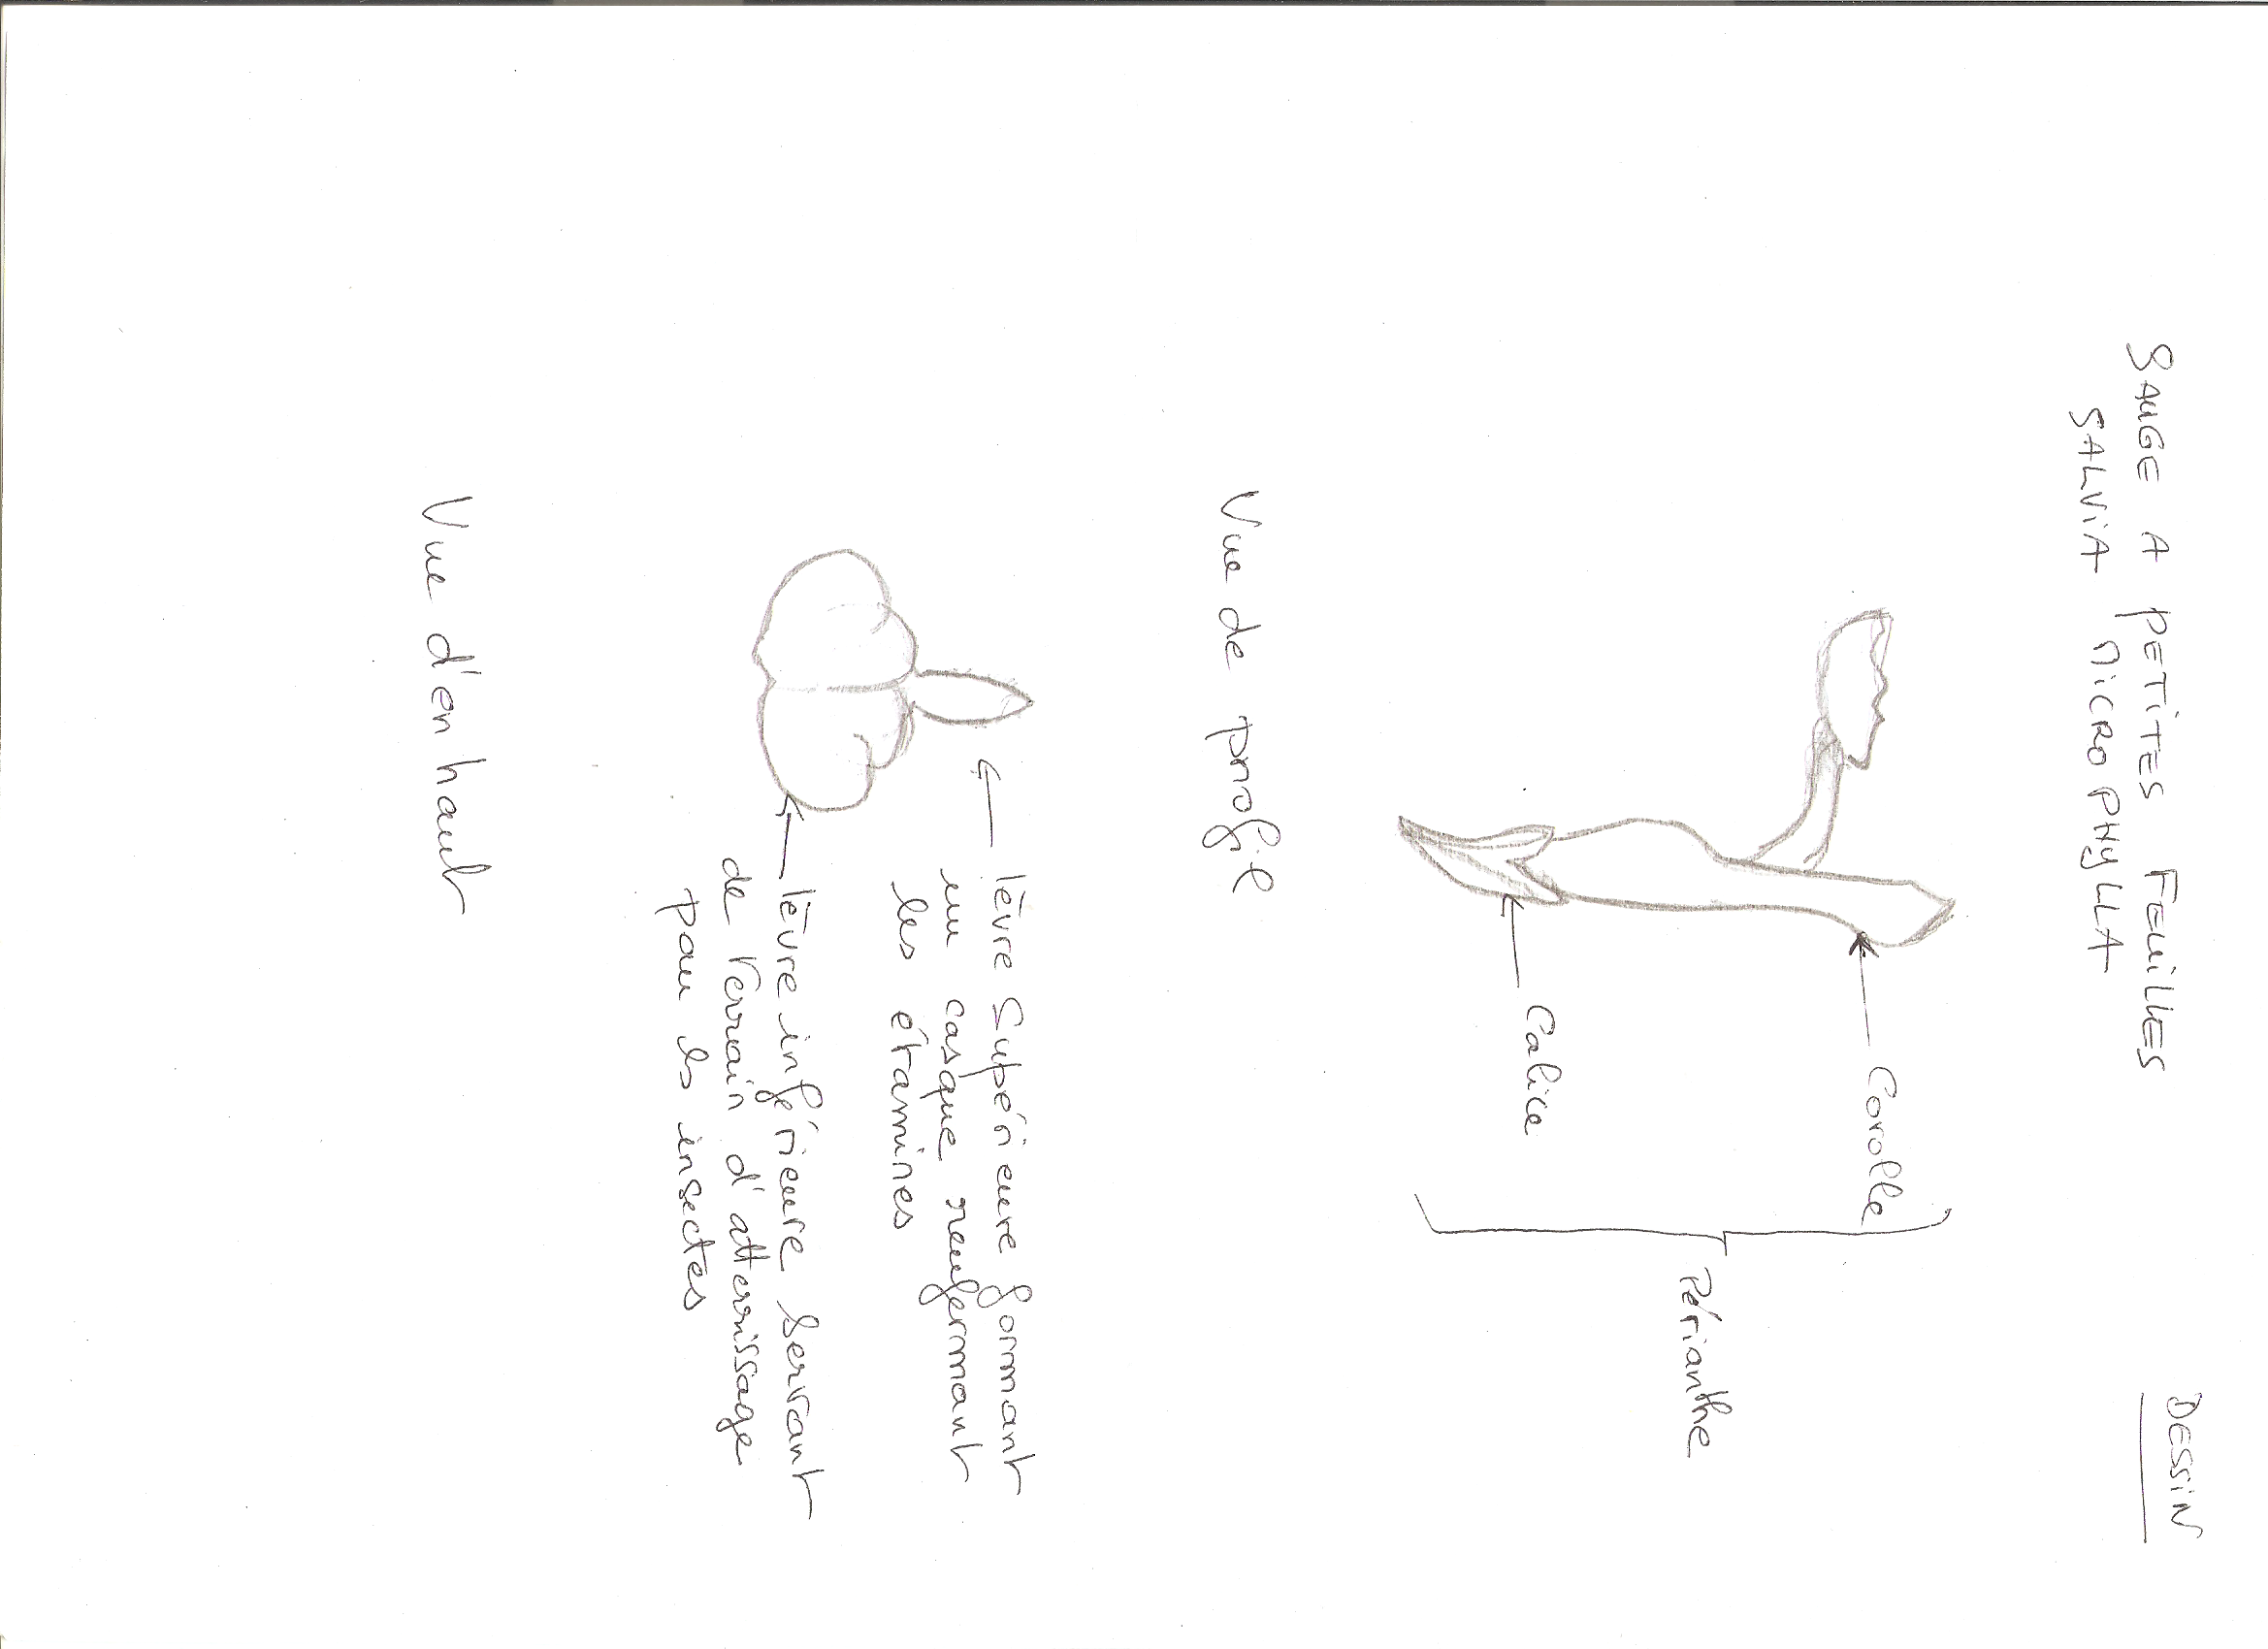 DESSIN
SAUGE A PETITES FEUILLES
SALViA MiCROPHYLLA
Corolle
Calice
Périanthe
Vue de profil
lèvre Supérieure formant
un casque renfermant
les étamines
lèvre inférieure servant
de terrain d'atterrissage
pour les insectes
Vue d'en haut